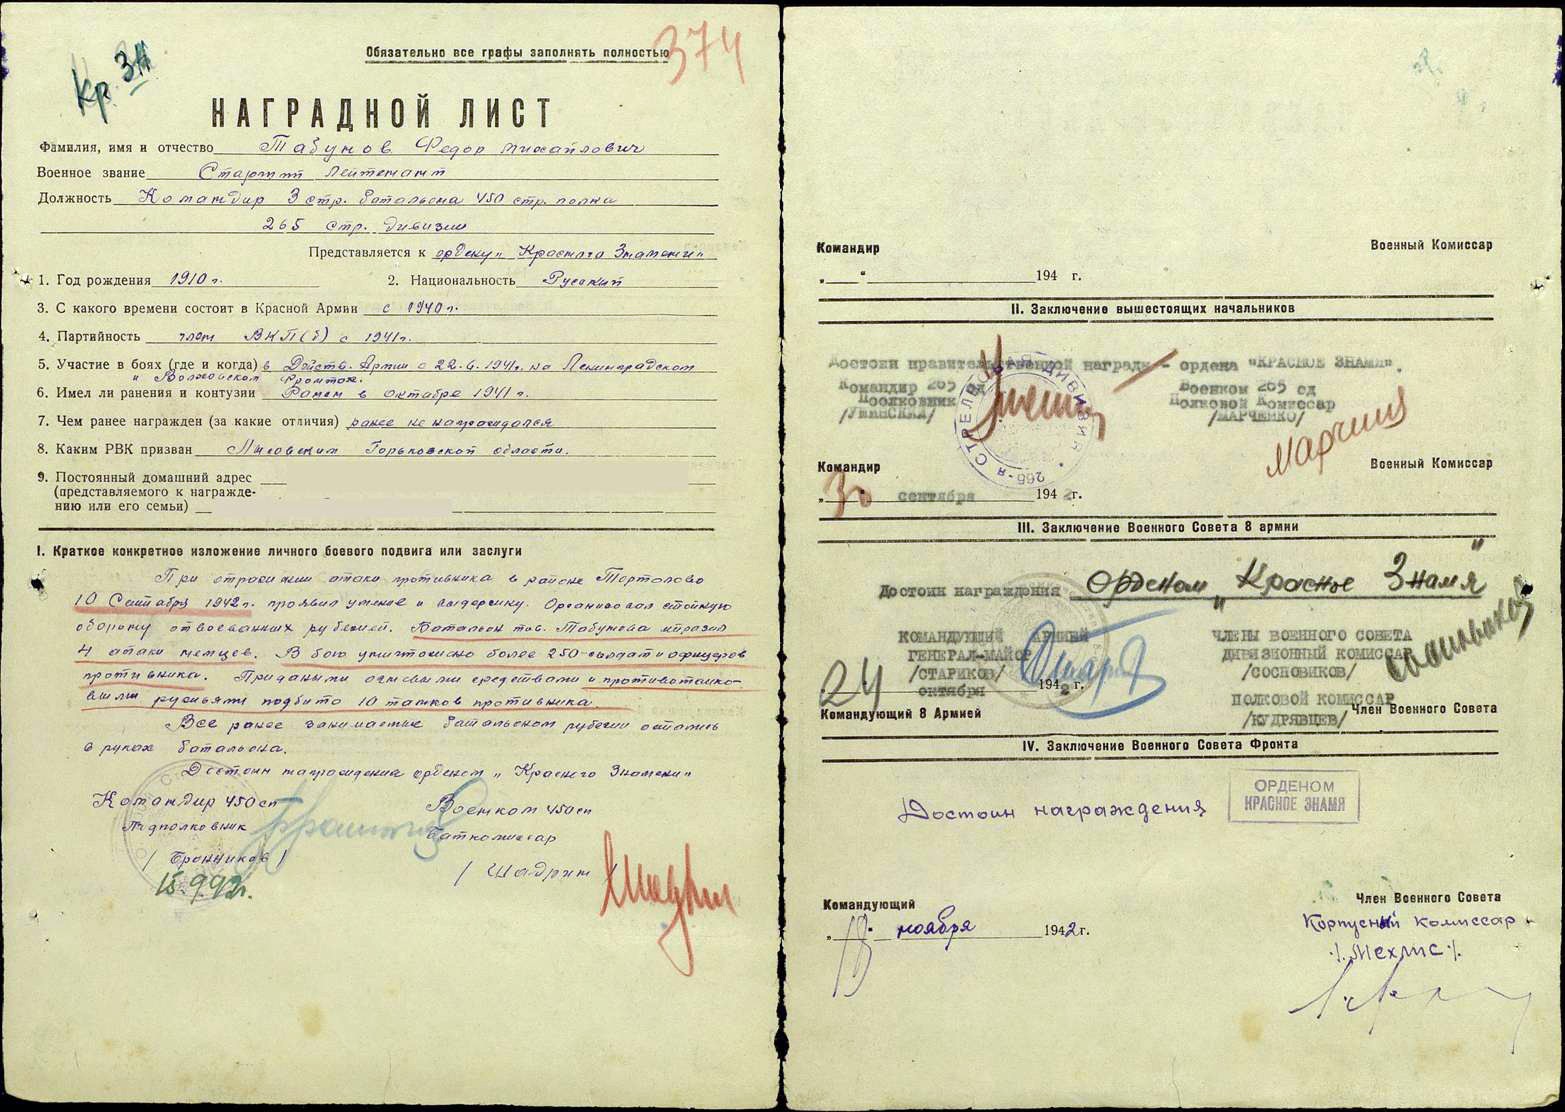 Кр. Зн
Обязательно все графы заполнять полностью
374
НАГРАДНОЙ ЛИСТ
Фамилия, имя и отчество Табунов Федор Михайлович
Военное звание Старший Лейтенант
Должность Командир 3 стр. батальона 450 стр. полка
265 стр. дивизии
Представляется к ордену „Красного Знамени"
1. Год рождения 1910 г. 2. Национальность Русский
3. С какого времени состоит в Красной Армии с 1940 г.
4. Партийность член ВКП(б) с 1941 г.
5. Участие в боях (где и когда) в Действ. Армии с 22.6.1941г. на Ленинградском
и Волховском фронтах.
6. Имел ли ранения и контузии Ранен в октябре 1941 г.
7. Чем ранее награжден (за какие отличия) ранее не награждался
8. Каким РВК призван Горьковской области.
9. Постоянный домашний адрес
(представляемого к награжде-
нию или его семьи)
I. Краткое конкретное изложение личного боевого подвига или заслуги
При отражении атаки противника в районе Тортолово
10 Сентября 1942 г. проявил умение и выдержку. Организовал стойкую
оборону отвоеванных рубежей. Батальон тов. Табунова отразил
4 атаки немцев. В бою уничтожено более 250 солдат и офицеров
противника. Приданными огневыми средствами и противотанко-
выми ружьями подбито 10 танков противника
Все ранее занимаемые батальоном рубежи остались
в руках батальона.
Достоин награждения орденом „Красного Знамени"
Командир 450 сп Военком 450 сп
Подполковник Баткомиссар
/ Бронников / / Шадрин /
15.9.42г.
Командир Военный Комиссар
„ " 194 г.
II. Заключение вышестоящих начальников
Достоин правительственной награды - ордена "КРАСНОЕ ЗНАМЯ".
Командир 265 сд Военком 265 сд
Полковник Полковой Комиссар
/УШИНСКИЙ/ /МАРЧЕНКО/
265-я СТРЕЛКОВАЯ ДИВИЗИЯ
Командир Военный Комиссар
„30" сентября 1942 г.
III. Заключение Военного Совета 8 армии
Достоин награждения Орденом „Красное Знамя"
КОМАНДУЮЩИЙ АРМИЕЙ ЧЛЕНЫ ВОЕННОГО СОВЕТА
ГЕНЕРАЛ-МАЙОР ДИВИЗИОННЫЙ КОМИССАР
/СТАРИКОВ/ /СОСНОВИКОВ/
24 октября 1942 г.
ПОЛКОВОЙ КОМИССАР
Командующий 8 Армией /КУДРЯВЦЕВ/ Член Военного Совета
IV. Заключение Военного Совета Фронта
Достоин награждения ОРДЕНОМ
КРАСНОЕ ЗНАМЯ
Командующий Член Военного Совета
„18" ноября 1942 г. Корпусный комиссар
/Мехлис/